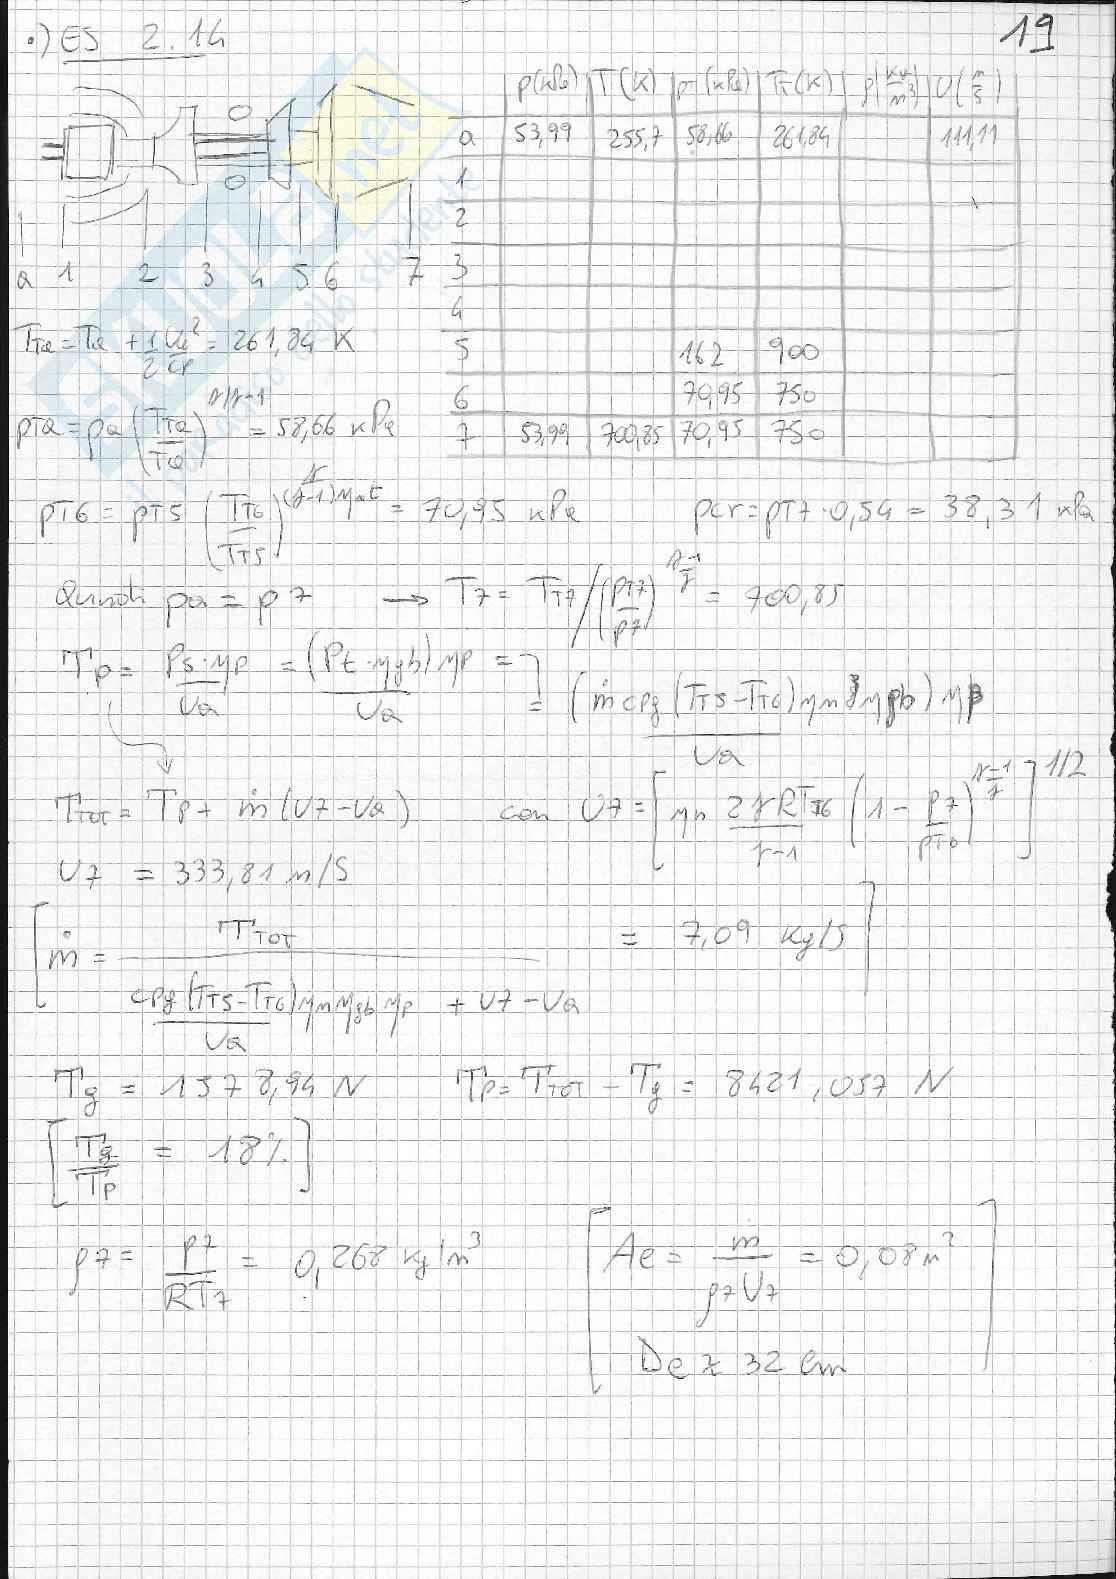 19
•) ES 2.14
p(kPa) T(K) pT(kPa) TT(K) ρ(kg/m³) U(m/s)
a 53,99 255,7 58,66 261,84 111,11
1
2
3
4
5 162 900
6 70,95 750
7 53,99 700,85 70,95 750
a 1 2 3 4 5 6 7
TTa = Ta + 1/2 Ua²/cp = 261,84 K
pTa = pa (TTa/Ta)^γ/γ-1 = 58,66 kPa
pT6 = pT5 (TT6/TT5)^γ/(γ-1)ηpt = 70,95 kPa pcr = pT7·0,54 = 38,31 kPa
Quindi pa = p7 → T7 = TT7/(pT7/p7)^γ-1/γ = 700,85
Tp = Ps·ηp/Ua = (Pt·ηgb)ηp/Ua =
= (ṁcpg(TT5-TT6)ηm ηgb)ηp/Ua
TTOT = Tp + ṁ(U7-Ua) con U7 = [ηn 2γRTT6/γ-1 (1 - p7/pT6)^γ-1/γ]^1/2
U7 = 333,81 m/s
[ṁ = TTOT / cpg(TT5-TT6)ηmηgbηp/Ua + U7-Ua = 7,09 kg/s]
Tg = 1578,94 N Tp = TTOT - Tg = 8421,057 N
[Tg/Tp = 18%]
ρ7 = p7/RT7 = 0,268 kg/m³ [Ae = ṁ/ρ7U7 = 0,08 m²
De ≈ 32 cm]
SKUOLA.net